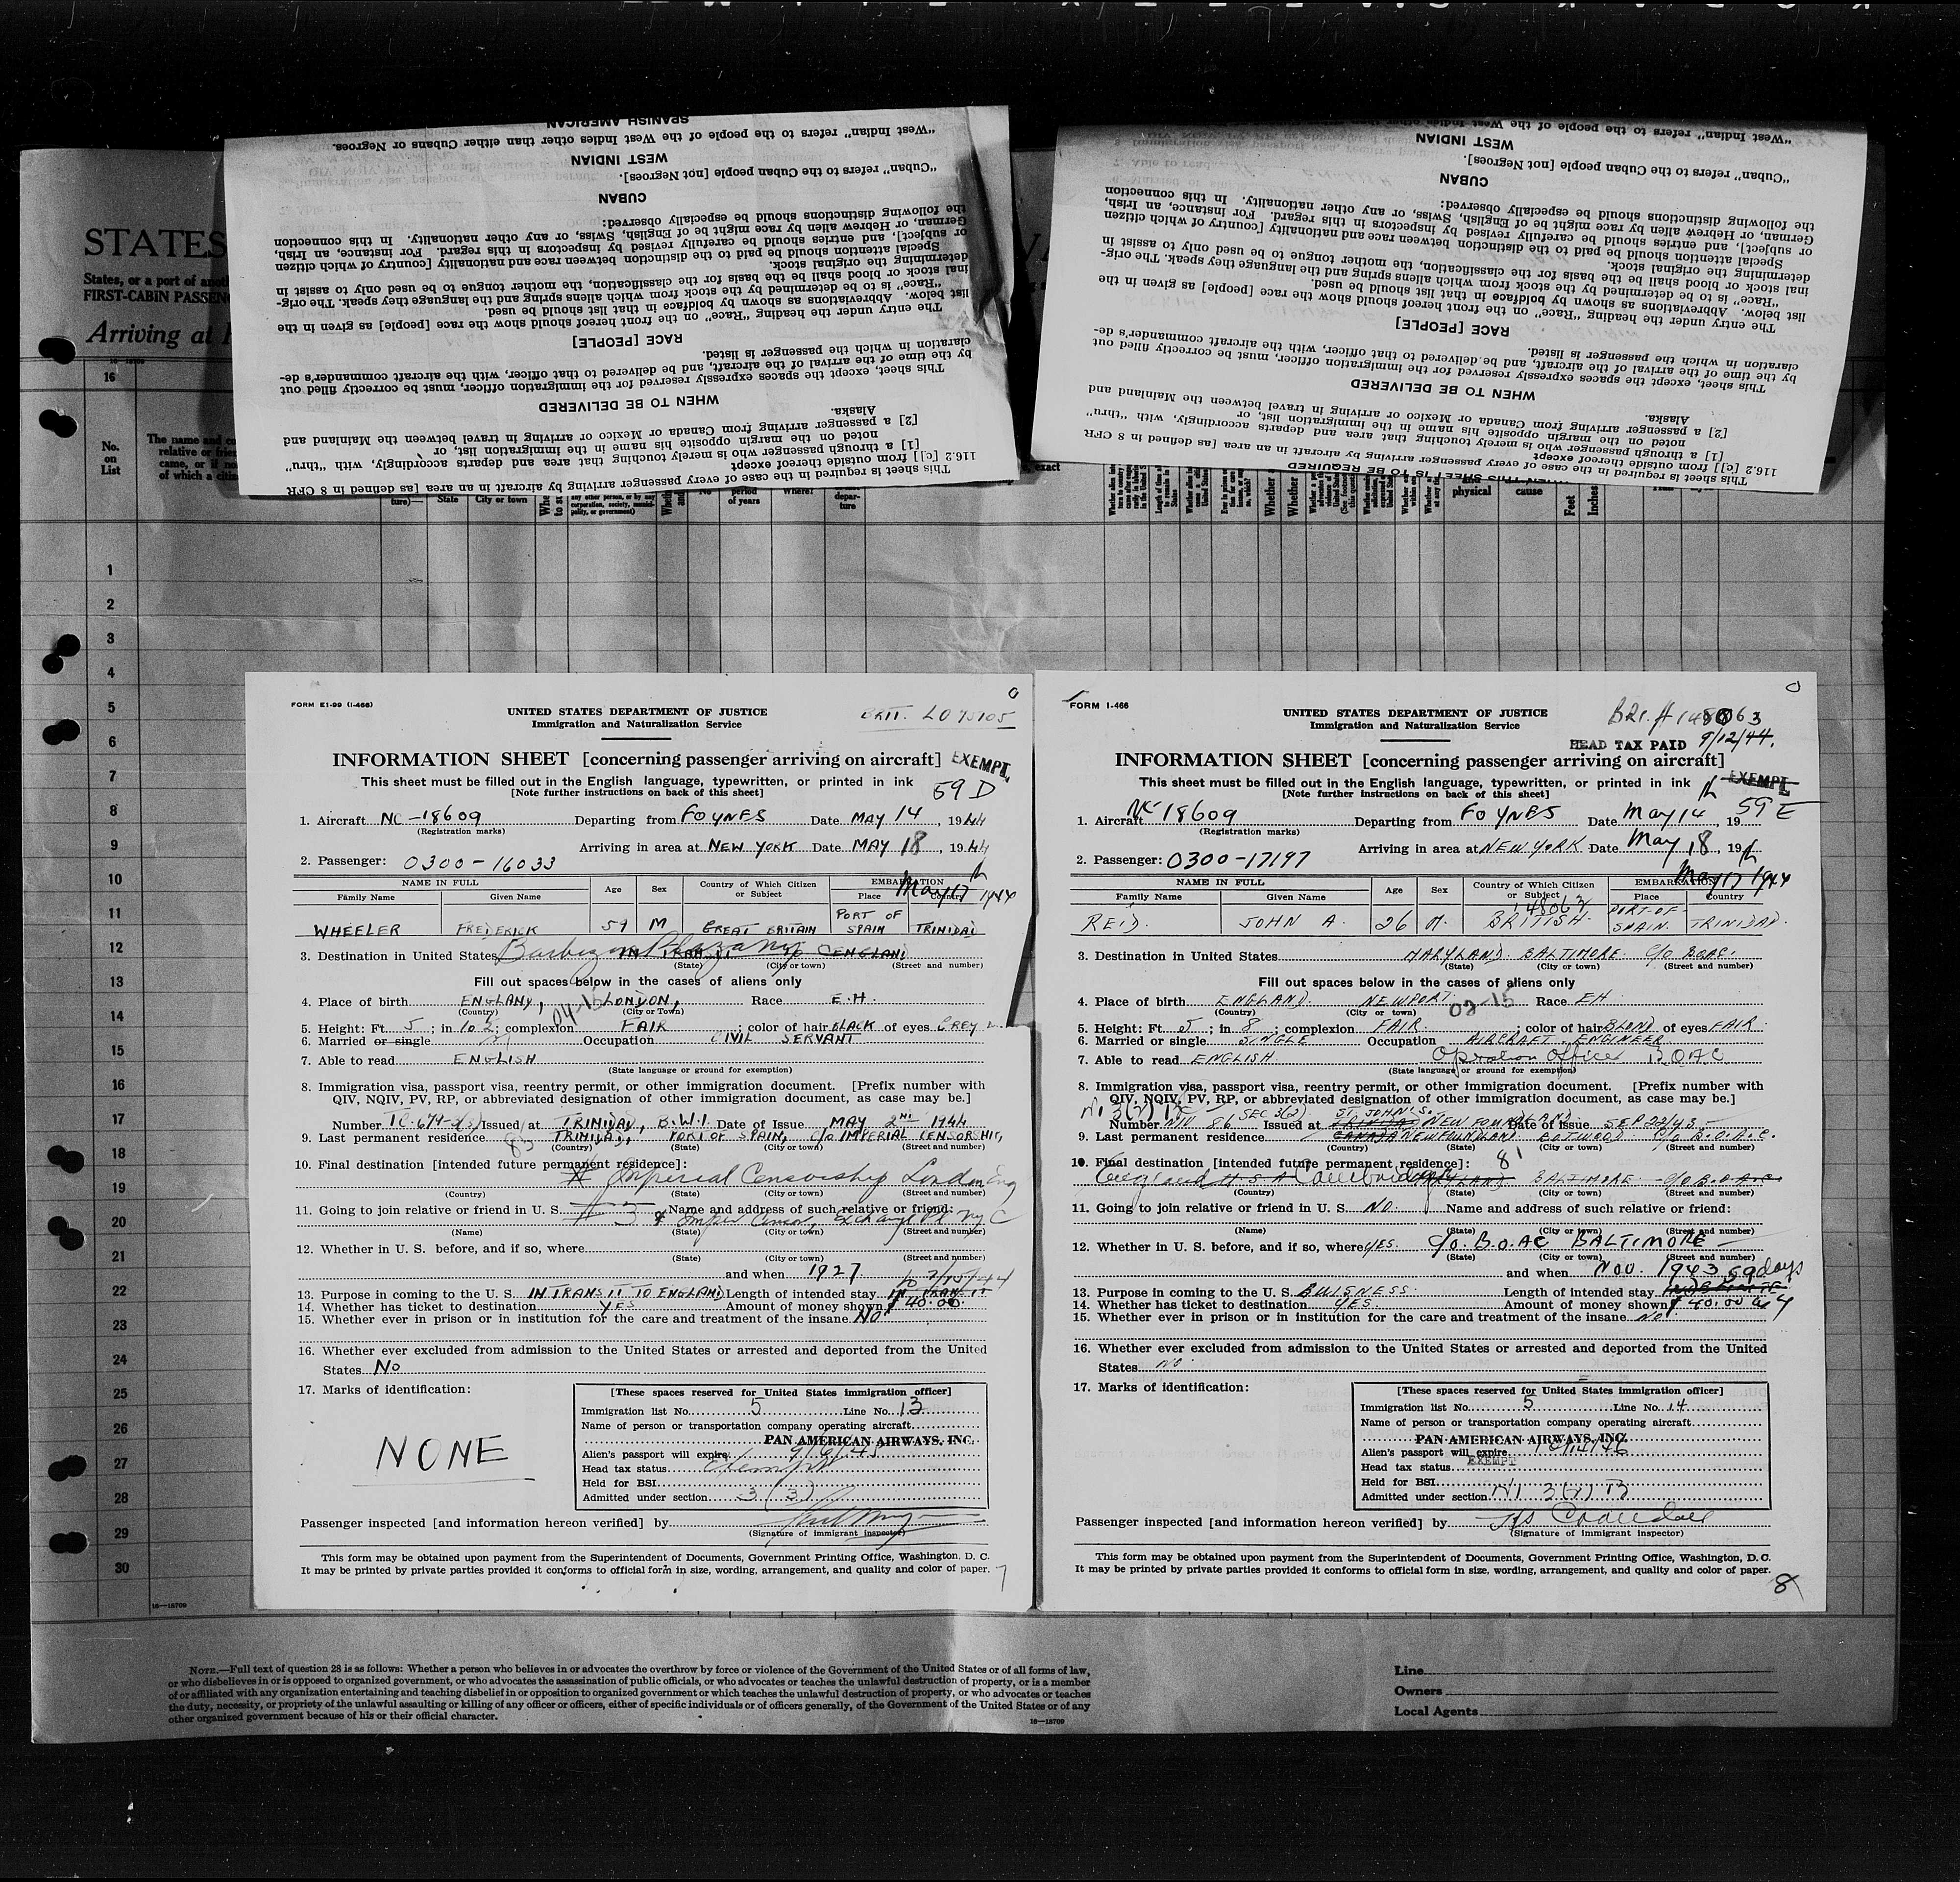 STATES
States, or a port of
FIRST-CABIN
Arriving at
16—18709
16
No.
on
List
"West Indian" refers to the people of the West Indies other than either Cubans or Negroes.
WEST INDIAN
"Cuban" refers to the Cuban people [not Negroes].
CUBAN
the following distinctions should be especially observed:
German, or Hebrew alien by race might be of English, Swiss, or any other nationality. In this connection
or subject], and entries should be carefully revised by inspectors in this regard. For instance, an Irish,
Special attention should be paid to the distinction between race and nationality [country of which citizen
determining the original stock.
inal stock or blood shall be the basis for the classification, the mother tongue to be used only to assist in
"Race" is to be determined by the stock from which aliens spring and the language they speak. The orig-
list below. Abbreviations as shown by boldface in that list should be used.
The entry under the heading "Race" on the front hereof should show the race [people] as given in the
RACE [PEOPLE]
claration in which the passenger is listed.
by the time of the arrival of the aircraft, and be delivered to that officer, with the aircraft commander's de-
This sheet, except the spaces expressly reserved for the immigration officer, must be correctly filled out
WHEN TO BE DELIVERED
Alaska.
[2] a passenger arriving from Canada or Mexico or arriving in travel between the Mainland and
noted on the margin opposite his name in the immigration list, or
[1] a through passenger who is merely touching that area and departs accordingly, with "thru"
116.2 [c]] from outside thereof except
This sheet is required in the case of every passenger arriving by aircraft in an area [as defined in 8 CFR
"West Indian" refers to the people of the West Indies other
WEST INDIAN
"Cuban" refers to the Cuban people [not Negroes].
CUBAN
the following distinctions should be especially observed:
German, or Hebrew alien by race might be of English, Swiss, or any other nationality. In this connection
or subject], and entries should be carefully revised by inspectors in this regard. For instance, an Irish,
Special attention should be paid to the distinction between race and nationality [country of which citizen
determining the original stock.
inal stock or blood shall be the basis for the classification, the mother tongue to be used only to assist in
"Race" is to be determined by the stock from which aliens spring and the language they speak. The orig-
list below. Abbreviations as shown by boldface in that list should be used.
The entry under the heading "Race" on the front hereof should show the race [people] as given in the
RACE [PEOPLE]
claration in which the passenger is listed.
by the time of the arrival of the aircraft, and be delivered to that officer, with the aircraft commander's de-
This sheet, except the spaces expressly reserved for the immigration officer, must be correctly filled out
WHEN TO BE DELIVERED
Alaska.
[2] a passenger arriving from Canada or Mexico or arriving in travel between the Mainland and
noted on the margin opposite his name in the immigration list, or
[1] a through passenger who is merely touching that area and departs accordingly, with "thru"
116.2 [c]] from outside thereof except
This sheet is required in the case of every passenger arriving by aircraft in an area [as defined in 8 CFR
ture)— State City or town No period of years Where? depar-ture
physical cause Feet Inches
1
2
3
4
5
6
7
8
9
10
11
12
13
14
15
16
17
18
19
20
21
22
23
24
25
26
27
28
29
30
16—18709
FORM E1-99 (I-466)
UNITED STATES DEPARTMENT OF JUSTICE
Immigration and Naturalization Service
BRIT. LO 75105
INFORMATION SHEET [concerning passenger arriving on aircraft] EXEMPT
This sheet must be filled out in the English language, typewritten, or printed in ink
[Note further instructions on back of this sheet] 59 D
1. Aircraft NC-18609 Departing from FOYNES Date MAY 14, 1944
(Registration marks)
Arriving in area at NEW YORK Date MAY 18, 1944
2. Passenger: 0300-16033
NAME IN FULL Age Sex Country of Which Citizen or Subject EMBARKATION May 17 1944
Family Name Given Name Place Country
WHEELER FREDERICK 59 M GREAT BRITAIN PORT OF SPAIN TRINIDAD
3. Destination in United States Barbizon Plaza NYC IN TRANSIT TO ENGLAND
(State) (City or town) (Street and number)
Fill out spaces below in the cases of aliens only
4. Place of birth ENGLAND, LONDON, Race E.H.
(Country) (City or Town)
04-15
5. Height: Ft. 5; in 10 ½; complexion FAIR; color of hair BLACK of eyes GREY
6. Married or single Occupation CIVIL SERVANT
7. Able to read ENGLISH
(State language or ground for exemption)
8. Immigration visa, passport visa, reentry permit, or other immigration document. [Prefix number with
QIV, NQIV, PV, RP, or abbreviated designation of other immigration document, as case may be.]
Number TC-674-3(3) Issued at TRINIDAD, B.W.I. Date of Issue MAY 2ND 1944
9. Last permanent residence TRINIDAD, PORT OF SPAIN, C/O IMPERIAL CENSORSHIP,
(Country) (State) (City or town) (Street and number)
10. Final destination [intended future permanent residence]:
Imperial Censorship London Eng
(Country) (State) (City or town) (Street and number)
11. Going to join relative or friend in U.S. # 3 Name and address of such relative or friend:
Imper Censor, Exchange Pl NYC
(Name) (State) (City or town) (Street and number)
12. Whether in U. S. before, and if so, where
(State) (City or town) (Street and number)
and when 1927
to 7/15/44
13. Purpose in coming to the U. S. IN TRANSIT TO ENGLAND Length of intended stay IN TRANSIT
14. Whether has ticket to destination YES Amount of money shown $ 40.00
15. Whether ever in prison or in institution for the care and treatment of the insane NO
16. Whether ever excluded from admission to the United States or arrested and deported from the United
States No
17. Marks of identification:
NONE
[These spaces reserved for United States immigration officer]
Immigration list No. 5 Line No. 13
Name of person or transportation company operating aircraft
PAN AMERICAN AIRWAYS, INC.
Alien's passport will expire 9/6/45
Head tax status Exempt
Held for BSI
Admitted under section 3 (3)
Passenger inspected [and information hereon verified] by
(Signature of immigrant inspector)
This form may be obtained upon payment from the Superintendent of Documents, Government Printing Office, Washington, D. C.
It may be printed by private parties provided it conforms to official form in size, wording, arrangement, and quality and color of paper.
7
FORM I-466
UNITED STATES DEPARTMENT OF JUSTICE
Immigration and Naturalization Service
Bri. # 148063
HEAD TAX PAID 9/12/44.
INFORMATION SHEET [concerning passenger arriving on aircraft]
This sheet must be filled out in the English language, typewritten, or printed in ink EXEMPT
[Note further instructions on back of this sheet] 59 E
1. Aircraft NC-18609 Departing from FOYNES Date May 14, 19
(Registration marks)
Arriving in area at NEW YORK Date May 18, 19
2. Passenger: 0300-17197
NAME IN FULL Age Sex Country of Which Citizen or Subject EMBARKATION May 17 1944
Family Name Given Name Place Country
148063
REID. JOHN A. 26 M. BRITISH. PORT-OF-SPAIN. TRINIDAD.
3. Destination in United States MARYLAND. BALTIMORE. C/O BOAC.
(State) (City or town) (Street and number)
Fill out spaces below in the cases of aliens only
4. Place of birth ENGLAND. NEWPORT. 02-15 Race EH
(Country) (City or town)
5. Height: Ft. 5; in 8; complexion FAIR; color of hair BLOND of eyes FAIR
6. Married or single SINGLE Occupation AIRCRAFT ENGINEER
7. Able to read ENGLISH. Operation Officer BOAC
(State language or ground for exemption)
8. Immigration visa, passport visa, reentry permit, or other immigration document. [Prefix number with
QIV, NQIV, PV, RP, or abbreviated designation of other immigration document, as case may be.]
SEC 3(2) ST. JOHN'S.
Number NIV 86 Issued at TRINIDAD NEWFOUNDLAND. Date of issue SEP 22/43.
9. Last permanent residence CANADA NEWFOUNDLAND BOTWOOD. C/O B.O.A.C.
(Country) (State) (City or town) (Street and number)
10. Final destination [intended future permanent residence]: 81
England U.S.A. MARYLAND BALTIMORE - C/O B.O.A.C.
(Country) (State) (City or town) (Street and number)
11. Going to join relative or friend in U. S. NO. Name and address of such relative or friend:
(Name) (State) (City or town) (Street and number)
12. Whether in U. S. before, and if so, where YES. C/O. B.O.AC BALTIMORE
(State) (City or town) (Street and number)
and when NOV. 1943 59 days
13. Purpose in coming to the U. S. BUISNESS. Length of intended stay
14. Whether has ticket to destination YES. Amount of money shown $ 40.00
15. Whether ever in prison or in institution for the care and treatment of the insane NO
16. Whether ever excluded from admission to the United States or arrested and deported from the United
States NO.
17. Marks of identification:
[These spaces reserved for United States immigration officer]
Immigration list No. 5 Line No. 14
Name of person or transportation company operating aircraft
PAN AMERICAN AIRWAYS, INC.
Alien's passport will expire
Head tax status EXEMPT
Held for BSI
Admitted under section NI 3(2) B
Passenger inspected [and information hereon verified] by
(Signature of immigrant inspector)
This form may be obtained upon payment from the Superintendent of Documents, Government Printing Office, Washington, D. C.
It may be printed by private parties provided it conforms to official form in size, wording, arrangement, and quality and color of paper.
8
NOTE.—Full text of question 28 is as follows: Whether a person who believes in or advocates the overthrow by force or violence of the Government of the United States or of all forms of law,
or who disbelieves in or is opposed to organized government, or who advocates the assassination of public officials, or who advocates or teaches the unlawful destruction of property, or is a member
of or affiliated with any organization entertaining and teaching disbelief in or opposition to organized government or which teaches the unlawful destruction of property, or who advocates or teaches
the duty, necessity, or propriety of the unlawful assaulting or killing of any officer or officers, either of specific individuals or of officers generally, of the Government of the United States or of any
other organized government because of his or their official character.
16—18709
Line
Owners
Local Agents